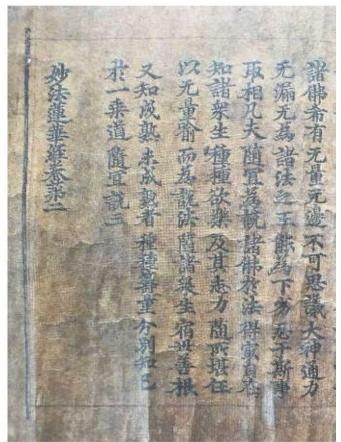 諸佛希有无量无邊不可思議大神通力
无漏无為諸法之王能為下劣忍于斯事
取相凡夫隨宜為說諸佛於法得最自在
知諸衆生種種欲樂及其志力隨所堪任
以无量喻而為說法隨諸衆生宿世善根
又知成熟未成熟者種種籌量分別知已
於一乘道隨宜說三
妙法蓮華經卷苐二